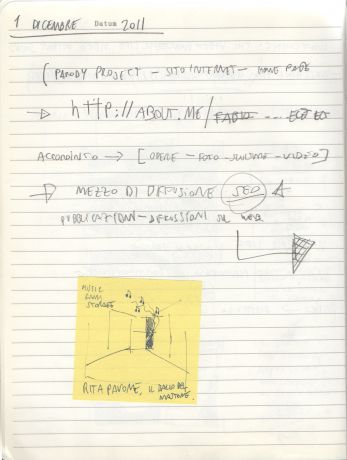 1 DICEMBRE Datum 2011
(PARODY PROJECT - SITO INTERNET - HOME PAGE
→ http://ABOUT.ME/FABIO ...
→ [OPERE - FOTO - - VIDEO]
→ MEZZO DI DIFFUSIONE SEO
PUBBLICAZIONI - DIFFUSIONI SUL WEB
MUSIC
FROM
STORAGE
RITA PAVONE, IL BALLO DEL
MATTONE.